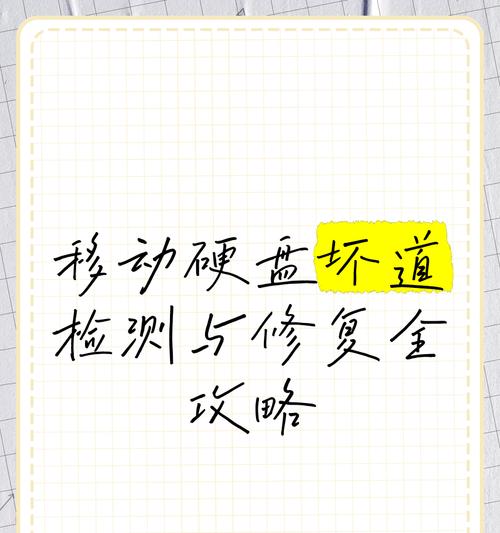 移动硬盘坏道
检测与修复全
攻略